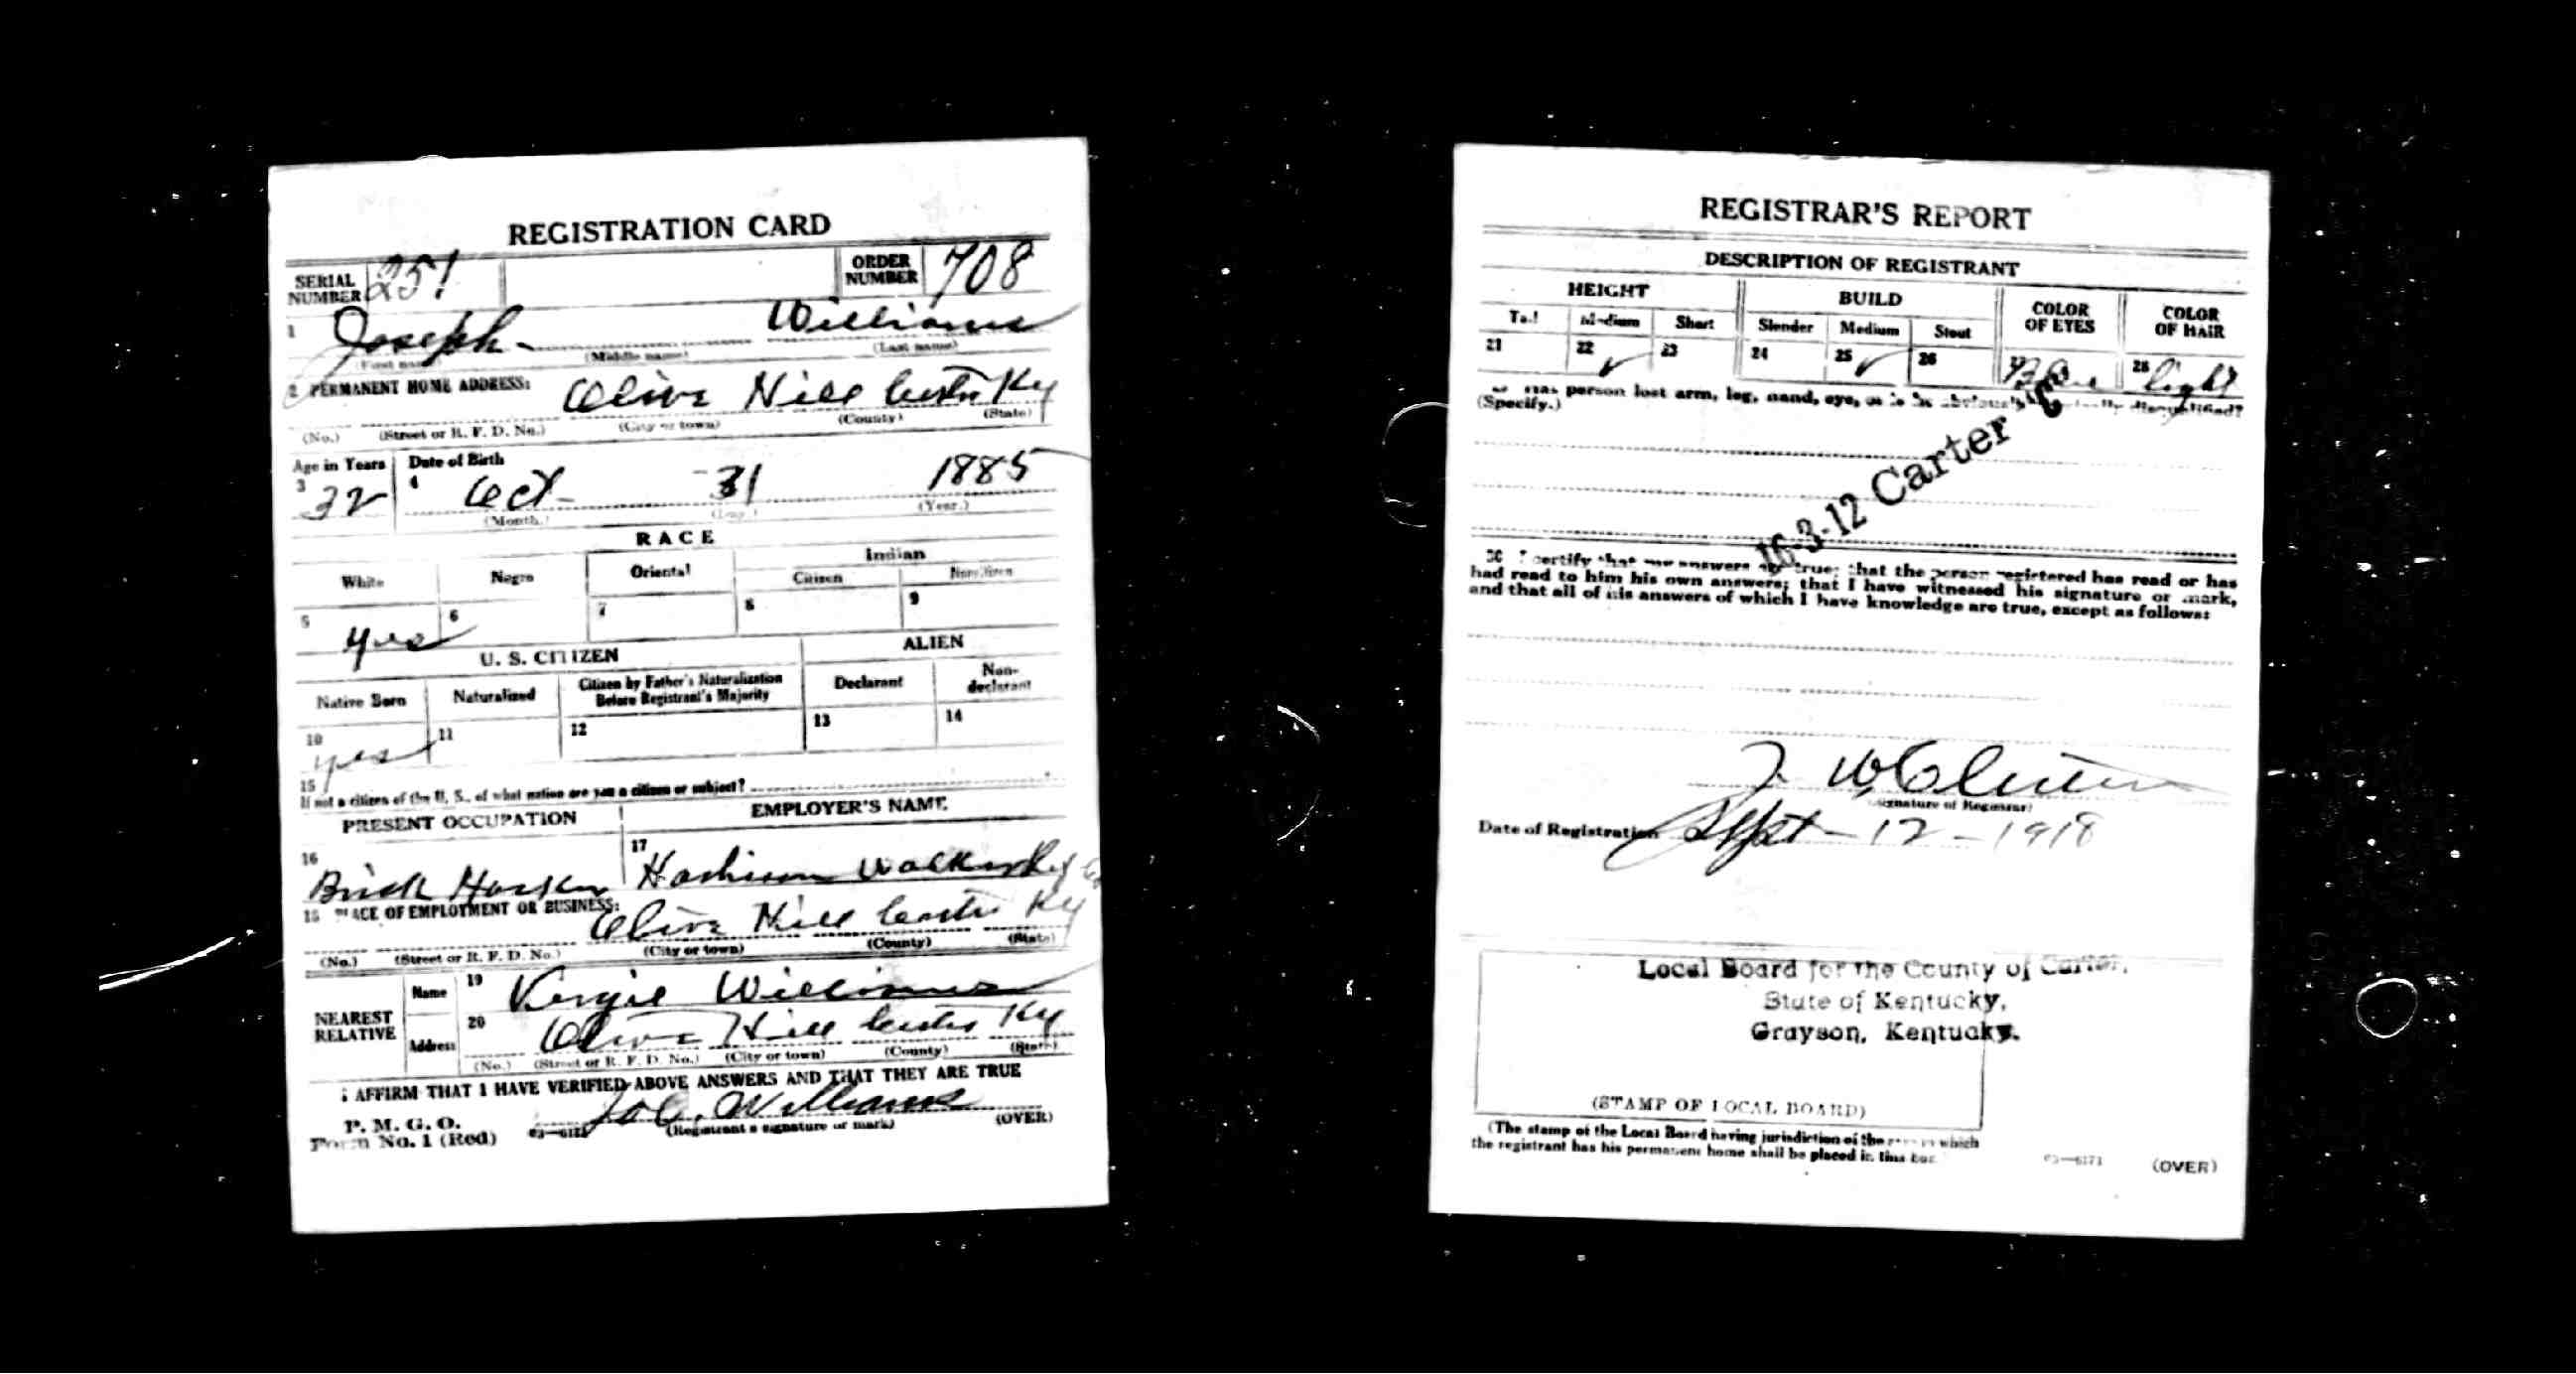 REGISTRATION CARD
SERIAL NUMBER 251 ORDER NUMBER 708
1 Joseph Williams
(First name) (Middle name) (Last name)
2 PERMANENT HOME ADDRESS: Olive Hill Ky
(No.) (Street or R. F. D. No.) (City or town) (County) (State)
Age in Years Date of Birth
3 32 4 Oct - 31 1885
(Month.) (Day.) (Year.)
RACE
White Negro Oriental Indian
Citizen Noncitizen
5 6 7 8 9
yes
U. S. CITIZEN ALIEN
Native Born Naturalized Citizen by Father's Naturalization Before Registrant's Majority Declarant Non-declarant
10 11 12 13 14
yes
15
If not a citizen of the U. S., of what nation are you a citizen or subject?
PRESENT OCCUPATION EMPLOYER'S NAME
16 Brick 17 Walker
18 PLACE OF EMPLOYMENT OR BUSINESS:
Olive Hill Carter Ky
(No.) (Street or R. F. D. No.) (City or town) (County) (State)
NEAREST RELATIVE Name 19 Virgie Williams
Address 20 Olive Hill Carter Ky
(No.) (Street or R. F. D. No.) (City or town) (County) (State)
I AFFIRM THAT I HAVE VERIFIED ABOVE ANSWERS AND THAT THEY ARE TRUE
P. M. G. O.
Form No. 1 (Red) 03—6171 Williams
(Registrant's signature or mark) (OVER)
REGISTRAR'S REPORT
DESCRIPTION OF REGISTRANT
HEIGHT BUILD COLOR OF EYES COLOR OF HAIR
Tall Medium Short Slender Medium Stout
21 22 ✓ 23 24 25 ✓ 26 27 Blue 28 light
Has person lost arm, leg, hand, eye, or is he obviously physically disqualified?
(Specify.)
16-3-12 Carter
30 I certify that my answers are true; that the person registered has read or has
had read to him his own answers; that I have witnessed his signature or mark,
and that all of his answers of which I have knowledge are true, except as follows:
(Signature of Registrar)
Date of Registration Sept - 12 - 1918
Local Board for the County of Carter,
State of Kentucky,
Grayson, Kentucky.
(STAMP OF LOCAL BOARD)
(The stamp of the Local Board having jurisdiction of the area in which
the registrant has his permanent home shall be placed in this box.
03—6171 (OVER)